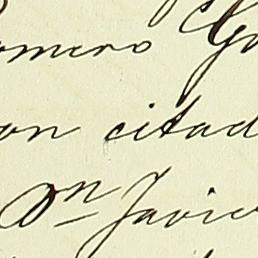 omero Go
on citad
Dn Javie